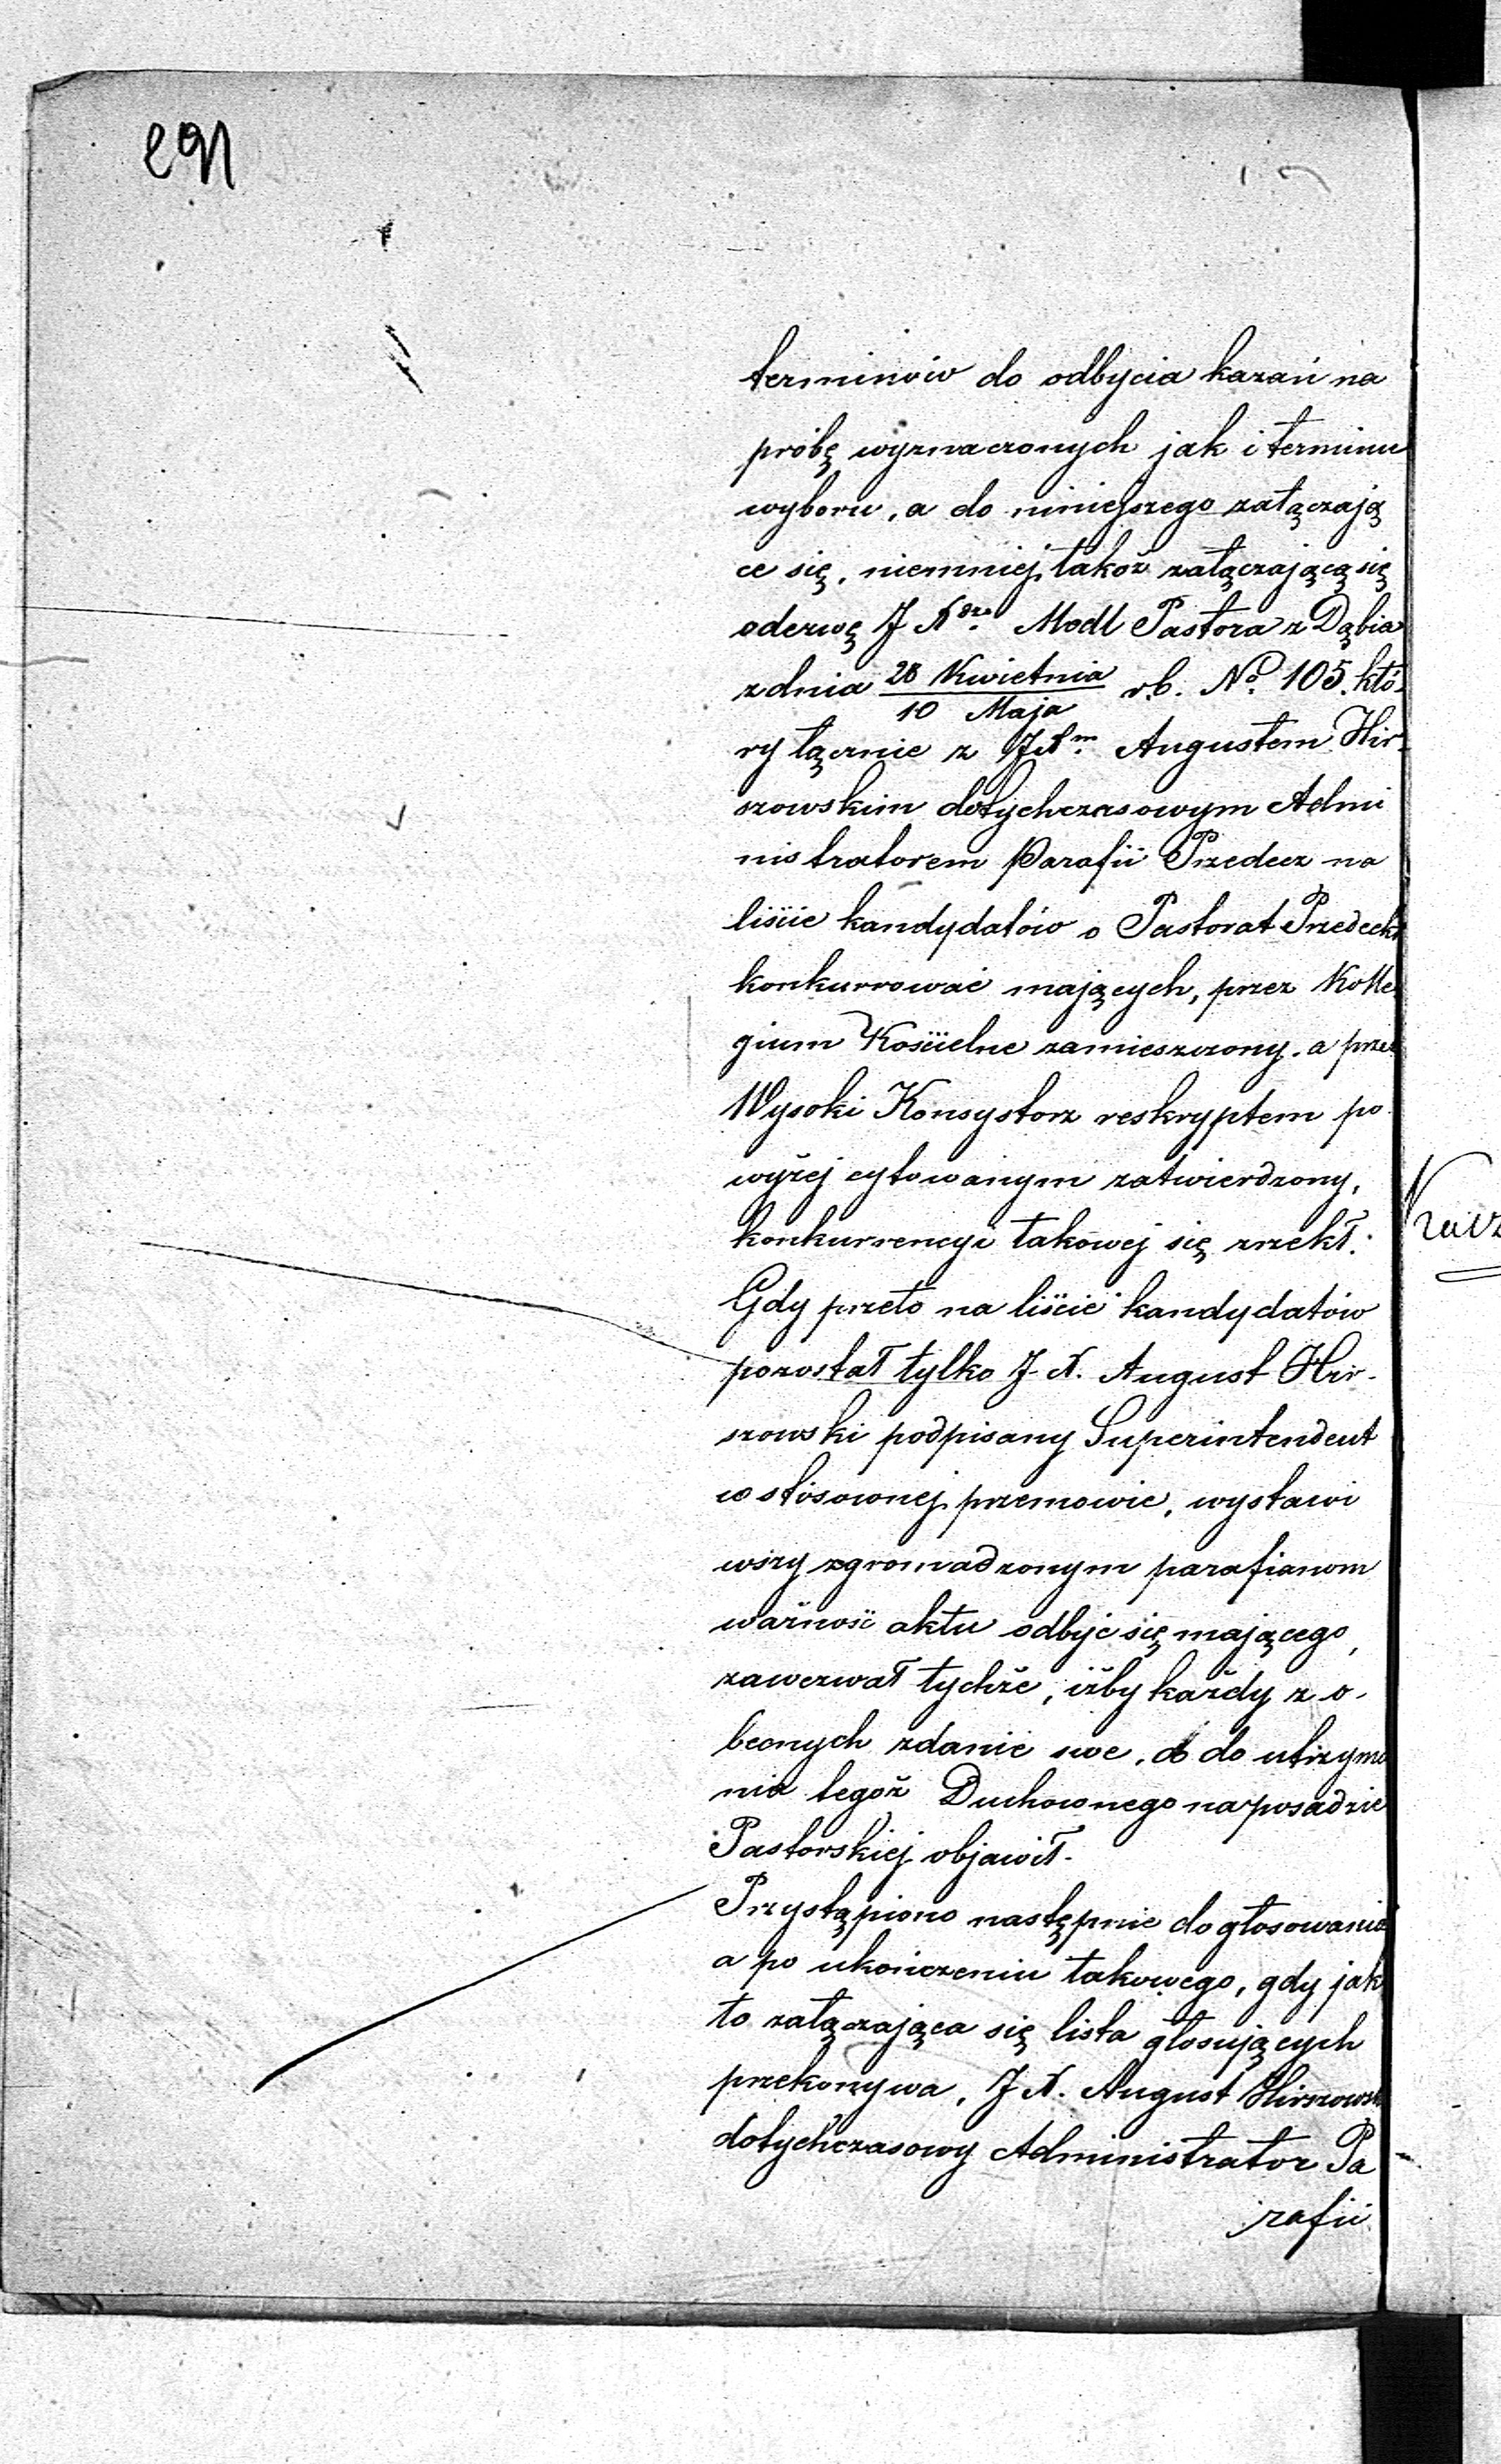 terminów do odbycia kazań na
próbę wyznaczonych jak i terminu
wyboru, a do niniejszego załączają
ce się, niemniej takoż załączającą się
odezwę J X<sup>dza</sup> Modl Pastora z Dąbia
z dnia 28 Kwietnia / 10 Maja r.b. No. 105. któ-
ry łącznie z JX<sup>m</sup>. Augustem Hir-
szowskim dotychczasowym Admi
nistratorem Parafii Przedecz na
liście kandydatów o Pastorat Przedecki
konkurrować mających, przez Kolle
gium Kościelne zamieszczony, a przez
Wysoki Konsystorz reskryptem po
wyżej cytowanym zatwierdzony,
konkurrencyi takowej się zrzekł.
Gdy przeto na liście kandydatów
pozostał tylko J. X. August Hir-
szowski podpisany Superintendent
w stósownej przemowie, wystawi
wszy zgromadzonym parafianom
ważność aktu odbyć się mającego,
zawezwał tychże, iżby każdy z o-
becnych zdanie swe, co do utrzyma
nia tegoż Duchownego na posadzie
Pastorskiej objawił.
Przystąpiono następnie do głosowania
a po ukończeniu takowego, gdy jak
to załączająca się lista głosujących
przekonywa, J X. August Hirszowski
dotychczasowy Administrator Pa
rafii